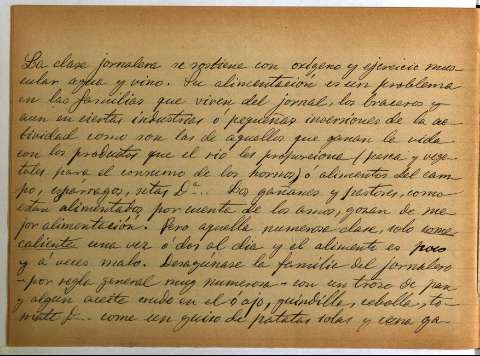 La clase jornalera se sostiene con oxígeno y ejercicio mus-
cular agua y vino. Su alimentación es un problema
en las familias que viven del jornal, los braceros y
aun en ciertas industrias o pequeñas inversiones de la ac-
tividad como son las de aquellos que ganan la vida
con los productos que el rio les proporciona (pesca y vege-
tales para el consumo de los hornos) o alimentos del cam-
po, esparragos, setas &ª.. Los gañanes y pastores, como
estan alimentados por cuenta de los amos, gozan de me-
jor alimentación. Pero aquella numerosa clase, solo come
caliente una vez ó dos al dia y el alimento es poco
y á veces malo. Desayúnase la familia del jornalero
- por regla general muy numerosa - con un trozo de pan
y algun aceite crudo en el ó ajo, guindilla, cebolla, to-
mate &ª.. come un guiso de patatas solas y cena ga-